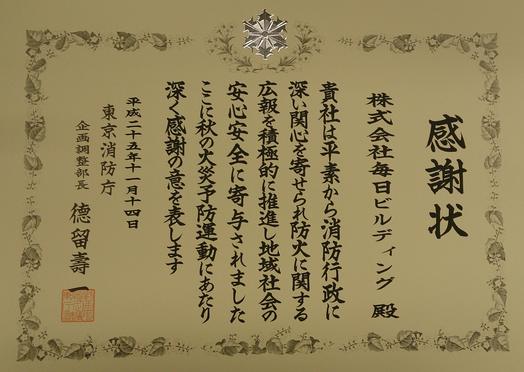 感謝状
株式会社毎日ビルディング 殿
貴社は平素から消防行政に
深い関心を寄せられ防火に関する
広報を積極的に推進し地域社会の
安心安全に寄与されました
ここに秋の火災予防運動にあたり
深く感謝の意を表します
平成二十五年十一月十四日
東京消防庁
企画調整部長 德留壽一